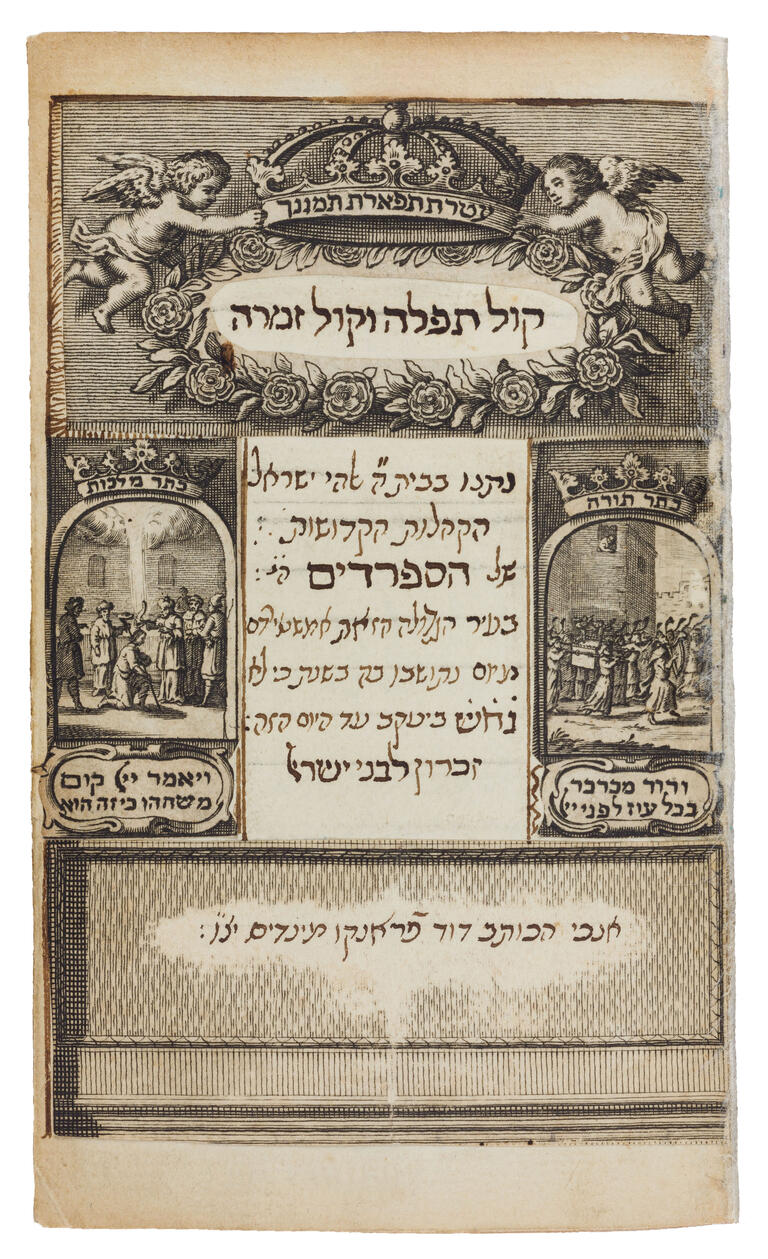 עטרת תפארת תמגנך
קול תפלה וקול זמרה
כתר תורה
ודוד מכרכר
בכל עוז לפני יי
נתנו בבית ה״ אלהי ישראל
הקהלות הקדושות :
של הספרדים ה״י :
בעיר הגדולה הזאת
מיום נתישבו בה בשנת כי לא
נחש ביעקב עד היום הזה:
זכרון לבני ישראל
כתר מלכות
ויאמר ייי קום
משחהו כי זה הוא
אנכי הכותב דוד פראנקו מינדיס יצ״ו: